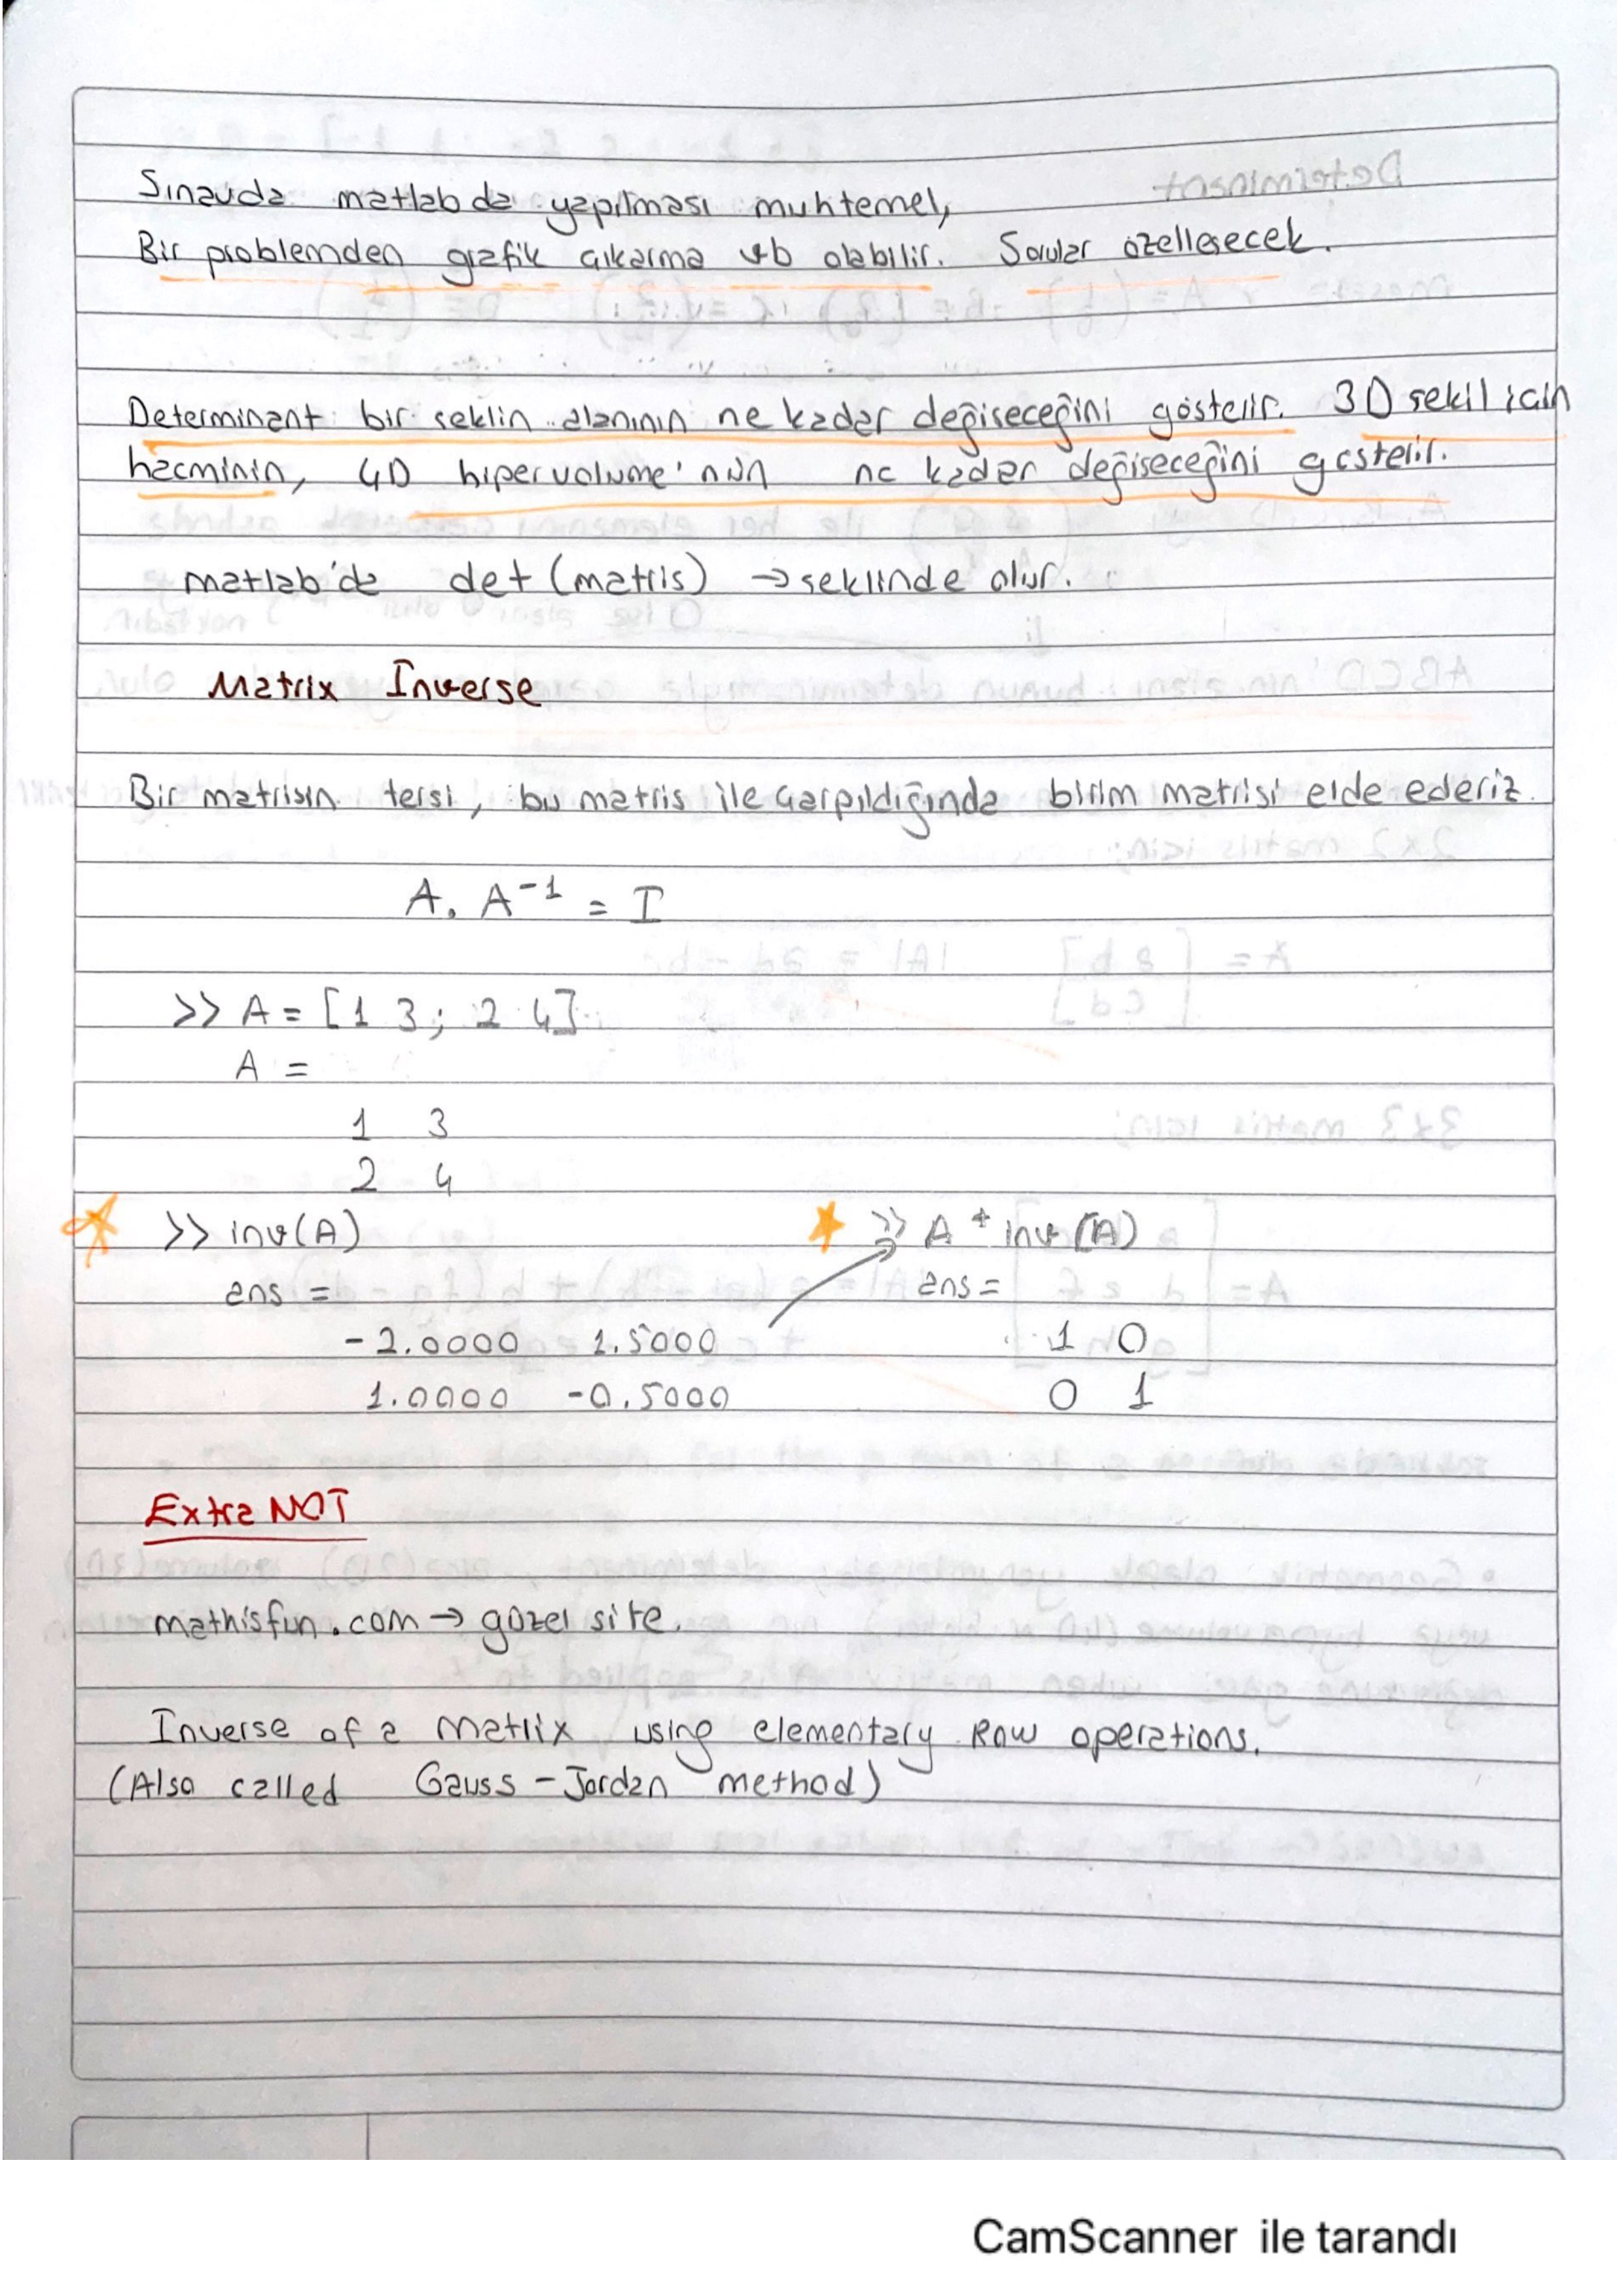 Sınavda matlabda yapılması muhtemel,
Bir problemden grafik çıkarma vb olabilir. Sorular özelleşecek.
Determinant bir şeklin alanının ne kadar değişeceğini gösterir. 3D şekil için
hacminin, 4D hipervolume'nün ne kadar değişeceğini gösterir.
matlab'da det (matris) → şeklinde olur.
Matrix Inverse
Bir matrisin tersi, bu matris ile çarpıldığında birim matrisi elde ederiz.
A. A⁻¹ = I
>> A = [1 3; 2 4]
A =
1 3
2 4
>> inv(A)
ans =
-2.0000 1.5000
1.0000 -0.5000
>> A * inv (A)
ans =
1 0
0 1
Extra NOT
mathisfun.com → güzel site.
Inverse of a Matrix using elementary Row operations.
(Also called Gauss-Jordan method)
CamScanner ile tarandı